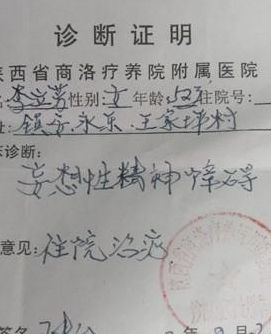 诊断证明
陕西省商洛疗养院附属医院
名:李 芳性别:女 年龄:  住院号:
址:镇安.永乐.王家坪村
床诊断:
妄想性精神障碍
意见:住院治疗
签名